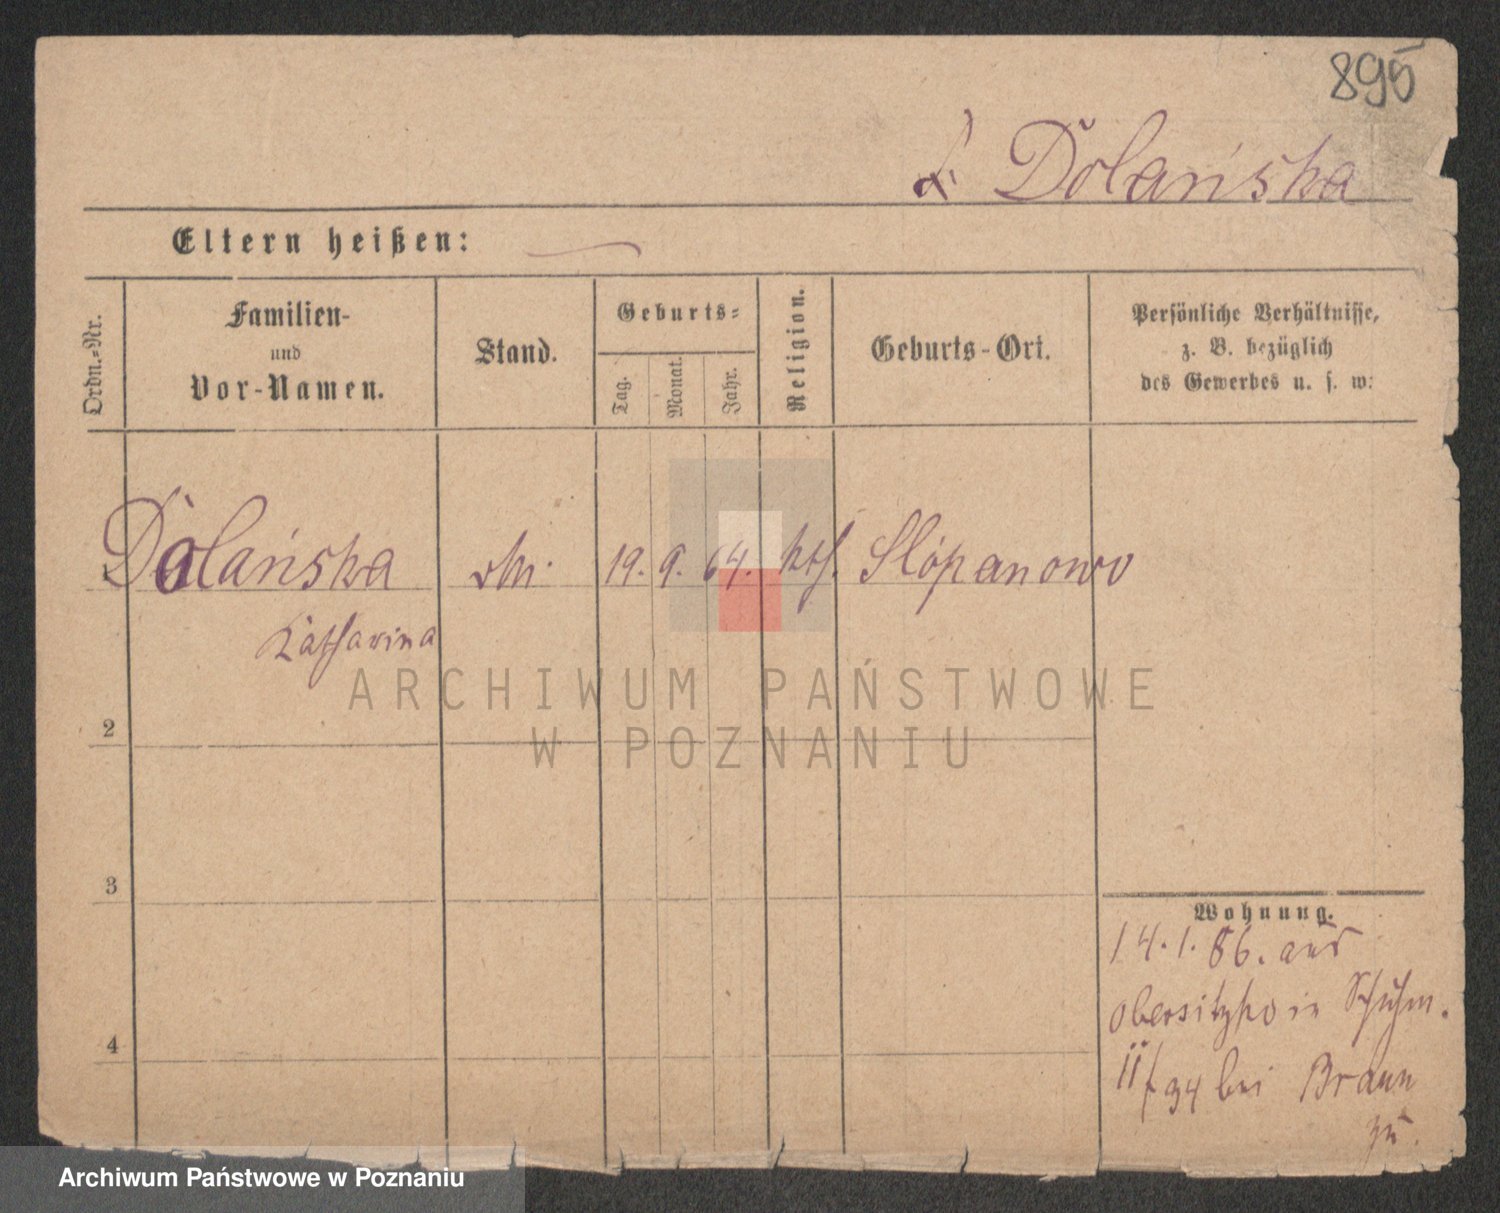 895
Dolańska
Eltern heißen:
Ordn.-Nr.
Familien-
und
Vor-Namen.
Stand.
Geburts-
Tag.
Monat.
Jahr.
Religion.
Geburts-Ort.
Persönliche Verhältnisse,
z. B. bezüglich
des Gewerbes u. s. w:
Dolańska 19. 9. 64. kth. Slópanowo
Katharina
2
3
4
Wohnung.
14. 1. 86. aus
obersitzko in Schuhm.
11/94 bei Braun
zu.
ARCHIWUM PAŃSTWOWE
W POZNANIU
Archiwum Państwowe w Poznaniu